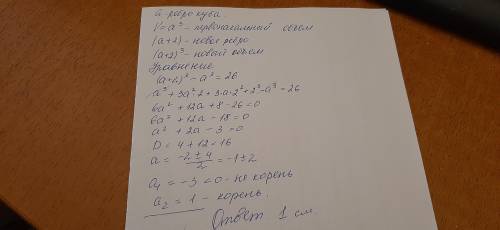 a - ребро куба
V = a³ - первоначальный объем
(a+2) - новое ребро
(a+2)³ - новый объем
Уравнение
(a+2)³ - a³ = 26
a³ + 3a²·2 + 3·a·2² + 2³ - a³ = 26
6a² + 12a + 8 - 26 = 0
6a² + 12a - 18 = 0
a² + 2a - 3 = 0
D = 4 + 12 = 16
a = (-2 ± 4)/2 = -1 ± 2
a₁ = -3 = 0 - не корень
a₂ = 1 - корень.
Ответ 1 см.